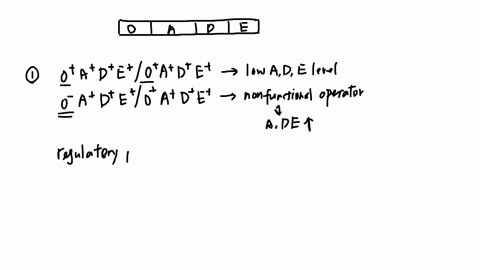 O A D E
① O⁺ A⁺ D⁺ E⁺ / O⁺ A⁺ D⁺ E⁺ → low A, D, E level
O⁻ A⁺ D⁺ E⁺ / O⁺ A⁺ D⁺ E⁺ → nonfunctional operator
A, D E ↑
regulatory